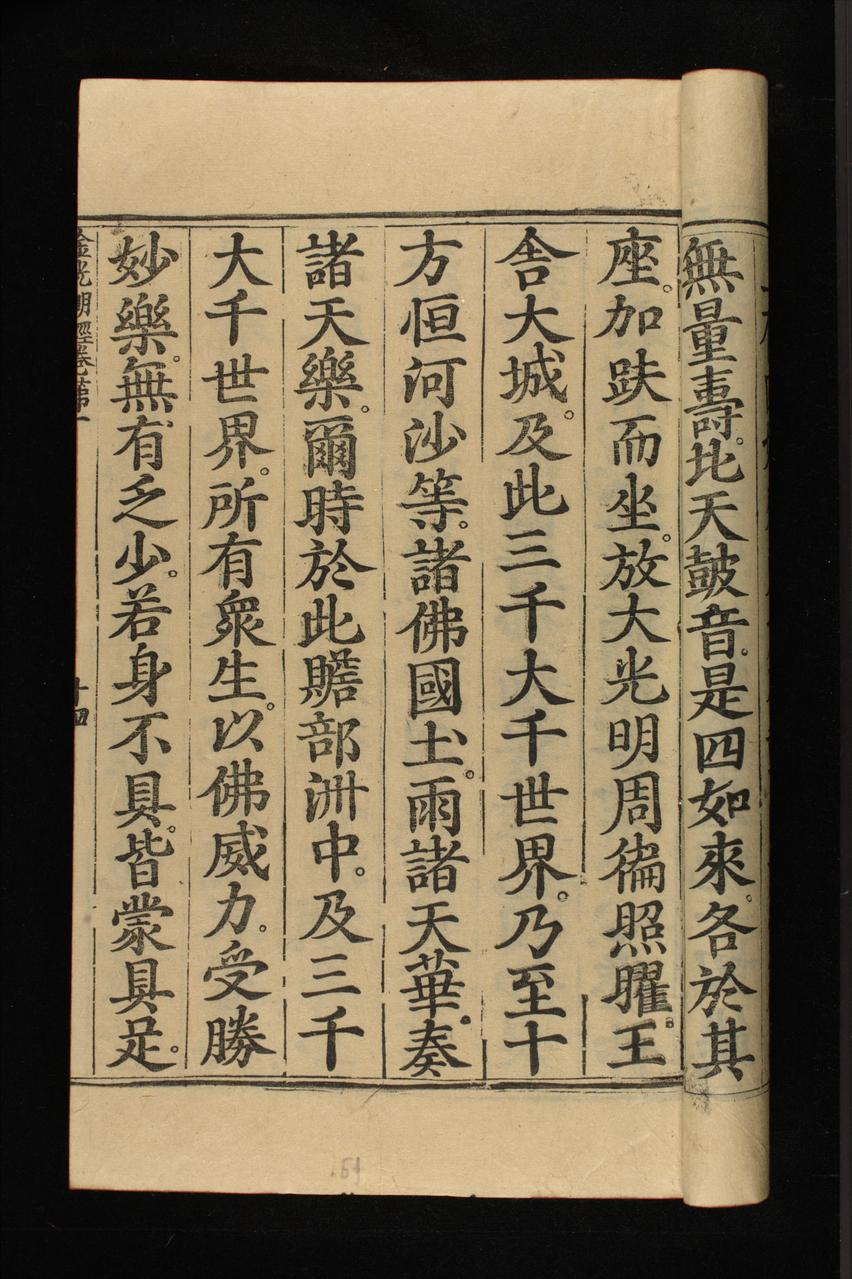 無量壽。北天鼓音。是四如來。各於其
座。加趺而坐。放大光明周徧照曜。王
舍大城。及此三千大千世界。乃至十
方恒河沙等。諸佛國土。雨諸天華。奏
諸天樂。爾時於此贍部洲中。及三千
大千世界。所有衆生。以佛威力。受勝
妙樂。無有乏少。若身不具。皆蒙具足。
金光明經卷第一
十四